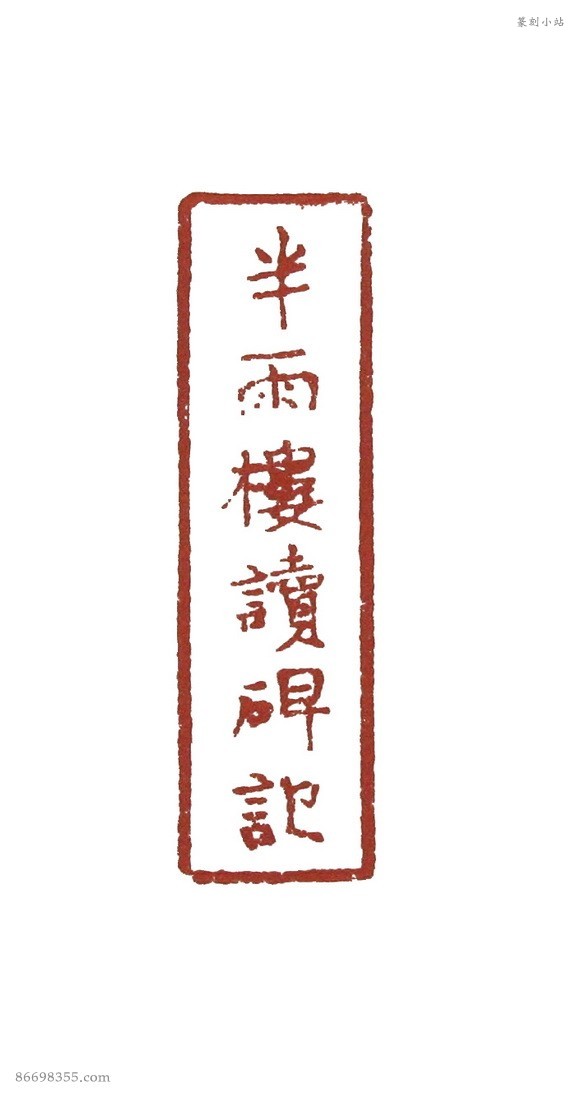 篆刻小站
半雨樓讀碑記
86698355.com